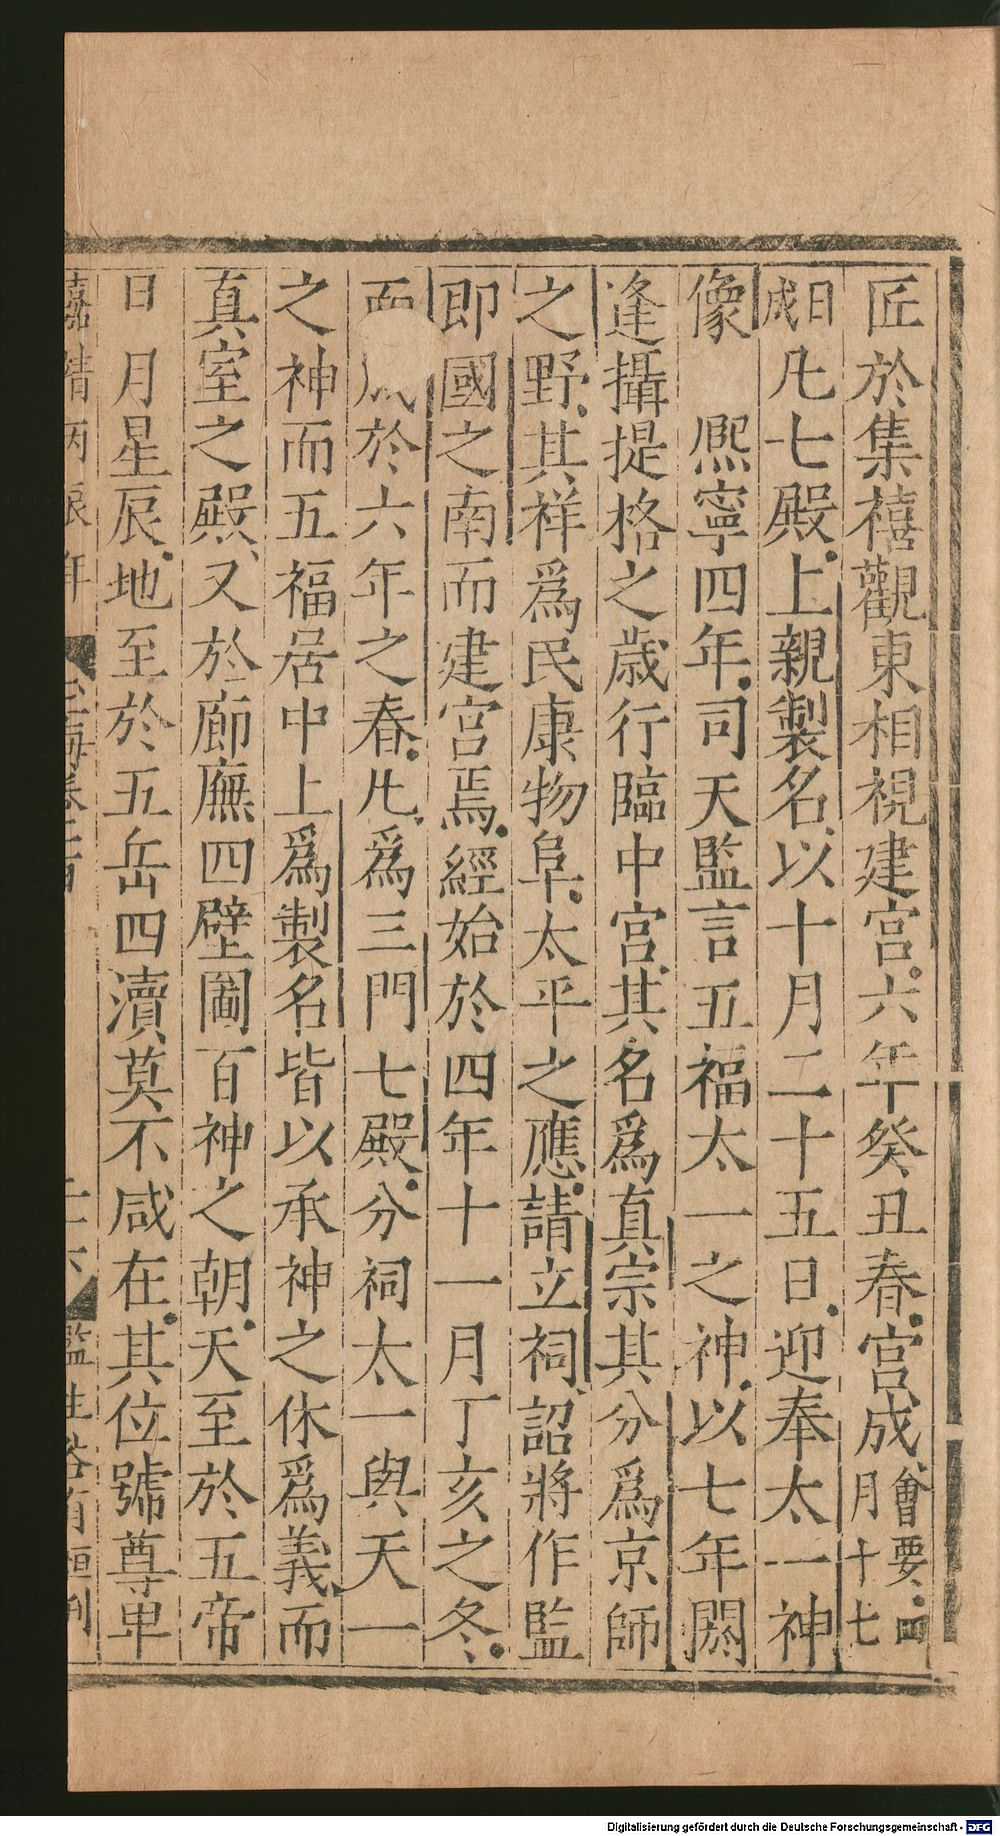 匠於集禧觀東相視建宮六年癸丑春宮成會要四月十七
日成凡七殿上親製名以十月二十五日迎奉太一神
像熈寧四年司天監言五福太一之神以七年閼
逢攝提格之歲行臨中宮其名爲真宗其分爲京師
之野其祥爲民康物阜太平之應請立祠詔將作監
即國之南而建宮焉經始於四年十一月丁亥之冬
於六年之春凡爲三門七殿分祠太一與天一
之神而五福居中上爲製名皆以承神之休爲義而
真室之殿又於廊廡四壁圖百神之朝天至於五帝
日月星辰地至於五岳四瀆莫不咸在其位號尊卑
嘉靖丙辰年
Digitalisierung gefördert durch die Deutsche Forschungsgemeinschaft - DFG